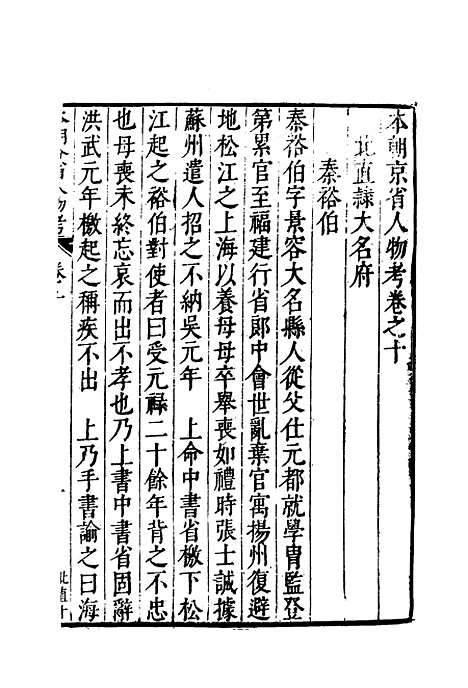 本朝京省人物考卷之十
北直隸大名府
秦裕伯
秦裕伯字景容大名縣人從父仕元都就學胄監登
第累官至福建行省郎中會世亂棄官寓揚州復避
地松江之上海以養母母卒舉喪如禮時張士誠據
蘇州遣人招之不納吳元年　上命中書省檄下松
江起之裕伯對使者曰受元祿二十餘年背之不忠
也母喪未終忘哀而出不孝也乃上書中書省固辭
洪武元年檄起之稱疾不出　上乃手書諭之曰海